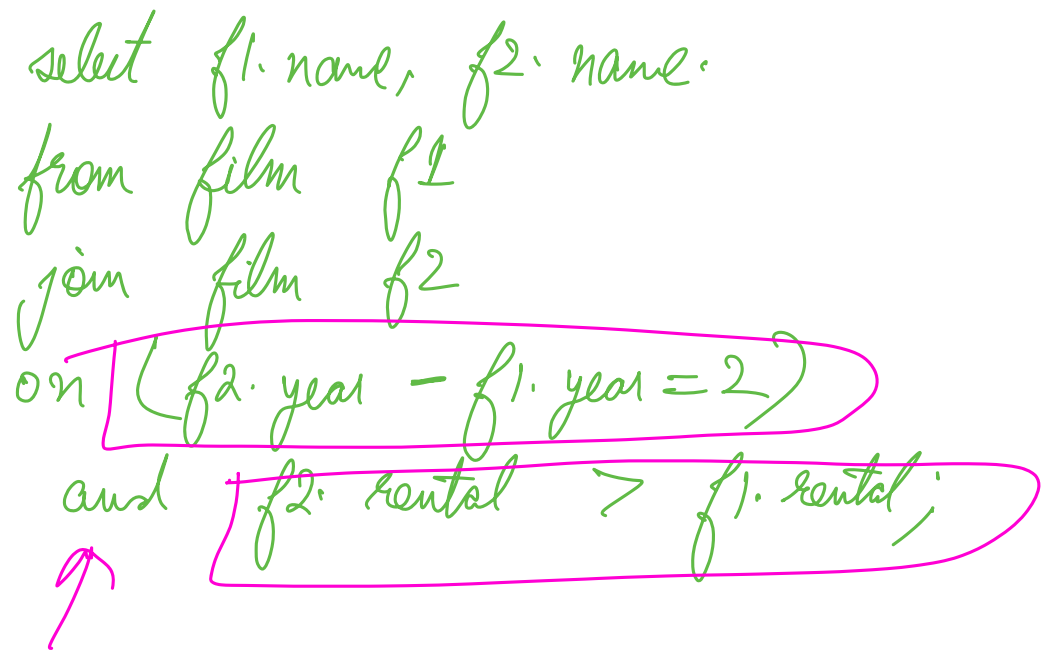 select f1.name, f2.name.
from film f1
join film f2
on (f2.year - f1.year = 2)
and f2.rental > f1.rental;